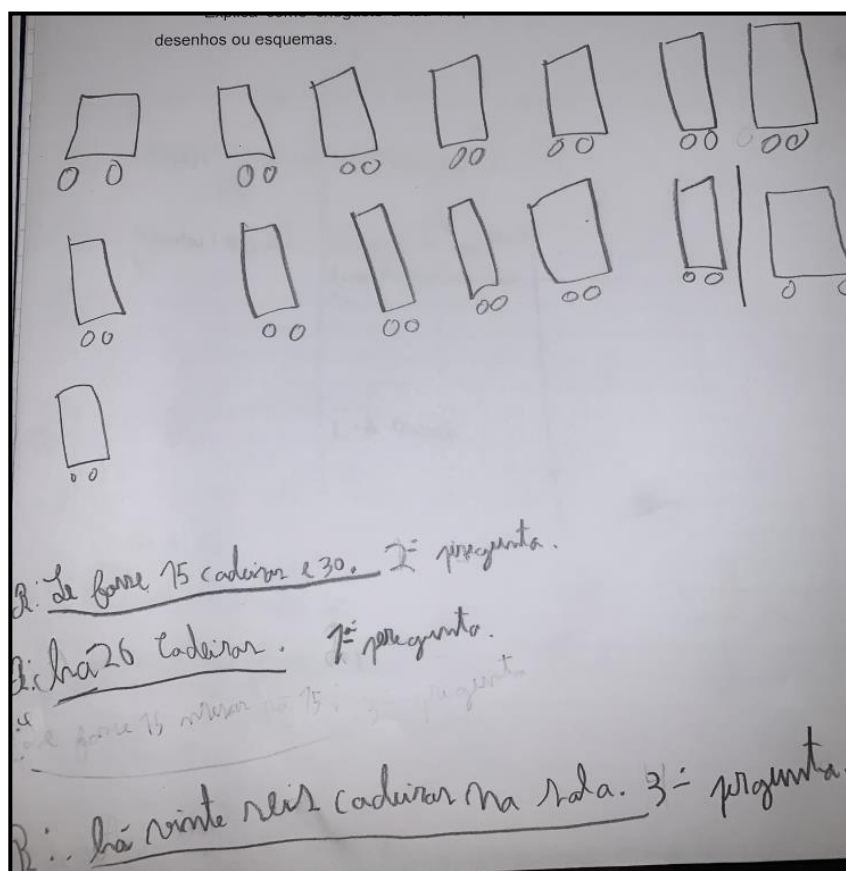 desenhos ou esquemas.
R: Se fosse 15 cadeiras e 30. 2ª pregunta.
R: há 26 cadeiras. 1ª pregunta.
R: há vinte seis cadeiras na sala. 3ª prgunta.